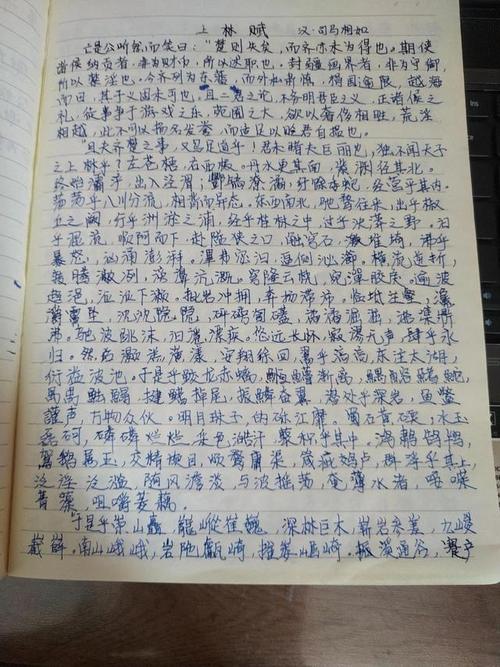 上林赋 汉·司马相如
亡是公听然而笑曰："楚则失矣,而齐亦未为得也。夫使
诸侯纳贡者,非为财币,所以述职也,封疆画界者,非为守御,
所以禁淫也,今齐列为东藩,而外私肃慎,捐国逾限,越海
而田,其于义固未可也,且二君之论,不务明君臣之义,正诸侯之
礼,徒事争于游戏之乐,苑囿之大,欲以奢侈相胜,荒淫
相越,此不可以扬名发誉,而适足以贬君自损也。
"且夫齐楚之事,又焉足道乎!君未睹夫巨丽也,独不闻天子
之上林乎?左苍梧,右西极。丹水更其南,紫渊径其北。
终始灞浐,出入泾渭;酆镐潦潏,纡馀委蛇,经营乎其内。
荡荡乎八川分流,相背而异态。东西南北,驰骛往来,出乎椒
丘之阙,行乎洲淤之浦,经乎桂林之中,过乎泱漭之野。汩
乎混流,顺阿而下,赴隘陕之口,触穹石,激堆埼,沸乎
暴怒,汹涌澎湃。滭弗宓汩,逼侧泌瀄。横流逆折,
转腾潎洌,滂濞沆溉。穹隆云桡,宛潬胶戾。逾波
趋浥,涖涖下濑。批岩冲拥,奔扬滞沛。临坻注壑,瀺
灂霣坠,沈沈隐隐,砰磅訇礚,潏潏淈淈,湁潗鼎
沸。驰波跳沫,汩漂疾。悠远长怀,寂漻无声,肆乎永
归。然后灏溔潢漾,安翔徐回,翯乎滈滈,东注太湖,
衍溢陂池。于是乎蛟龙赤螭,䱭䲛渐离,鰅鰫鳍鮀,
禺禺魼鳎,揵鳍掉尾,振鳞奋翼,潜处乎深岩,鱼鳖
讙声,万物众伙。明月珠子,的砾江靡。蜀石黄碝,水玉
磊砢,磷磷烂烂,采色澔汗,藂积乎其中。鸿鹔鹄鸨,
鴐鹅属玉,交精旋目,烦鹜庸渠,箴疵䴔卢,群浮乎其上,
泛淫泛滥,随风澹淡,与波摇荡,奄薄水渚,唼喋
菁藻,咀嚼菱藕。
"于是乎崇山矗矗,巃嵸崔巍,深林巨木,崭岩参差,九嵕
嶻嶭。南山峨峨,岩陁甗崎,摧崣崛崎。振溪通谷,蹇产